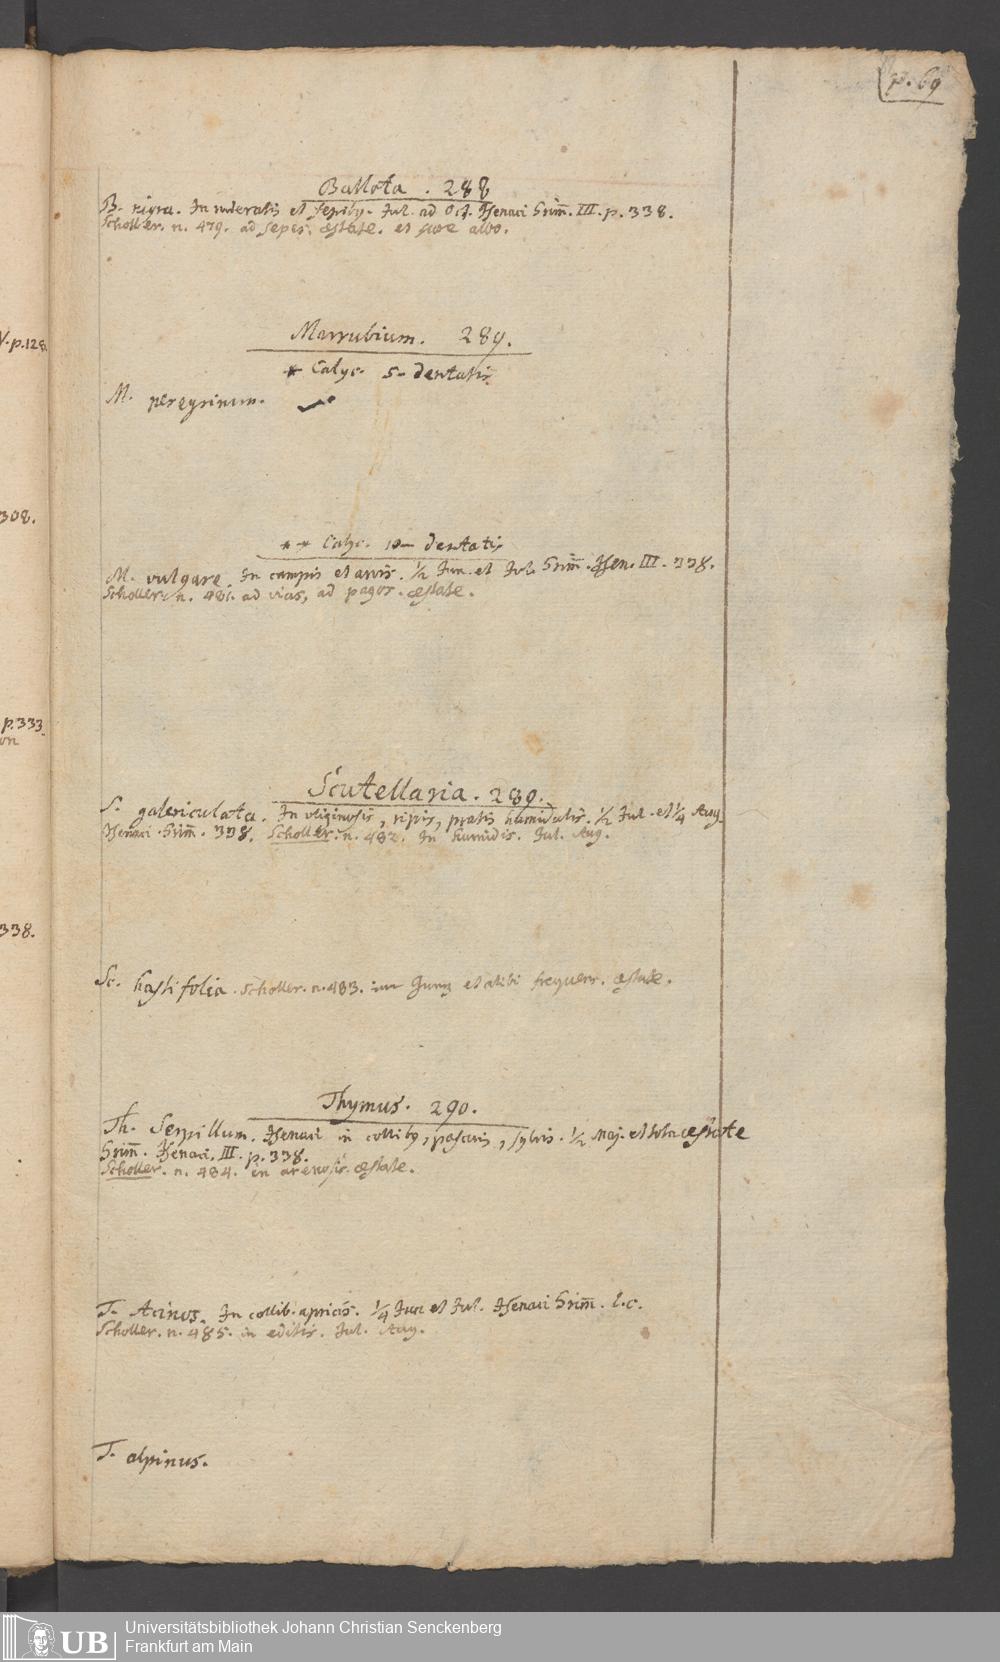 p. 69
Ballota . 288
B. nigra. In ruderatis et sepiby. Jul. ad Oct. Isenaci Grim̄. III. p. 338.
Scholler. n. 479. ad sepes. æstate. et flore albo.
V. p. 128
Marrubium. 289.
* Calyc. 5- dentatis
M. peregrinum.
308.
** Calyc. 10- dentatis
M. vulgare. In campis et arvis. 1/2 Jun. et Jul. Grim̄. Isen. III. 338.
Scholler. n. 481. ad vias, ad pagos. æstate.
p. 333.
on
Scutellaria. 289.
S. galericulata. In uliginosis, ripis, pratis humidulis. 1/2 Jul. et 1/4 Aug.
Isenaci. Grim̄. 338. Scholler. n. 482. In humidis. Jul. Aug.
338.
Sc. hastifolia. Scholler. n. 483. et alibi frequens. æstate.
Thymus. 290.
Th. Serpillum. Isenaci in colliby, pascuis, sylvis. 1/2 Maj. et tota æstate
Grim̄. Isenaci. III. p. 338.
Scholler. n. 484. in arenosis. æstate.
T. Acinos. In collib. apricis. 1/4 Jun et Jul. Isenaci Grim̄. l. c.
Scholler. n. 485. in editis. Jul. Aug.
T. alpinus.
UB
Universitätsbibliothek Johann Christian Senckenberg
Frankfurt am Main